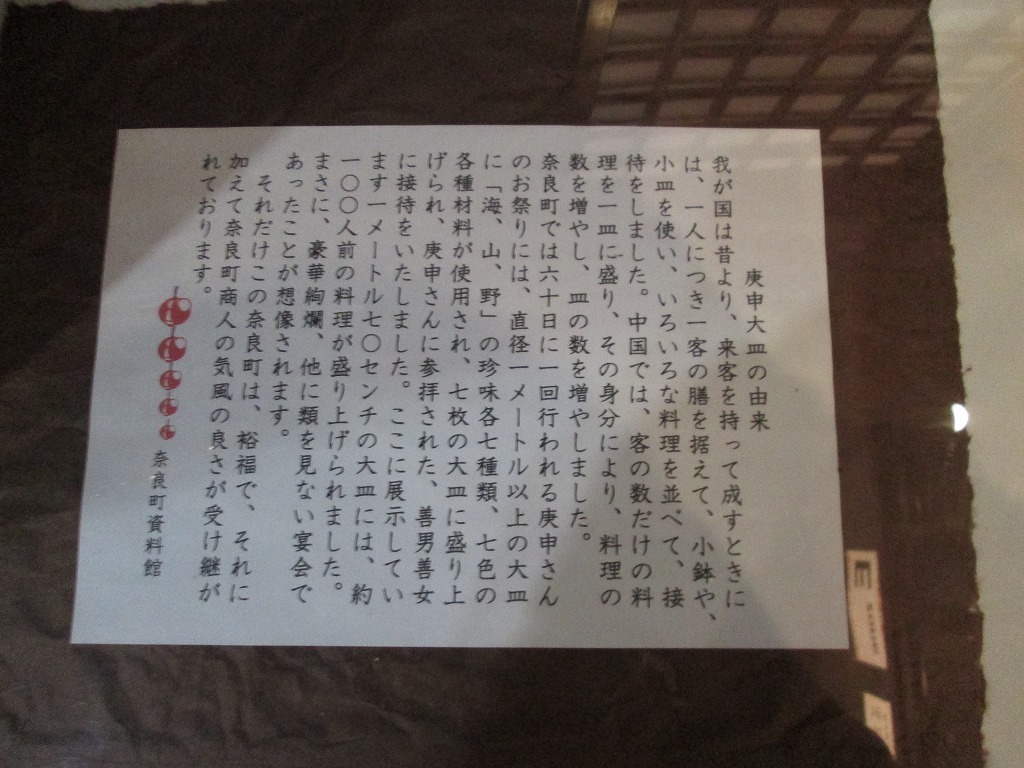 庚申大皿の由来
我が国は昔より、来客を持って成すときに
は、一人につき一客の膳を据えて、小鉢や、
小皿を使い、いろいろな料理を並べて、接
待をしました。中国では、客の数だけの料
理を一皿に盛り、その身分により、料理の
数を増やし、皿の数を増やしました。
奈良町では六十日に一回行われる庚申さん
のお祭りには、直径一メートル以上の大皿
に「海、山、野」の珍味各七種類、七色の
各種材料が使用され、七枚の大皿に盛り上
げられ、庚申さんに参拝された、善男善女
に接待をいたしました。ここに展示してい
ます一メートル七〇センチの大皿には、約
一〇〇人前の料理が盛り上げられました。
まさに、豪華絢爛、他に類を見ない宴会で
あったことが想像されます。
それだけこの奈良町は、裕福で、それに
加えて奈良町商人の気風の良さが受け継が
れております。
奈良町資料館